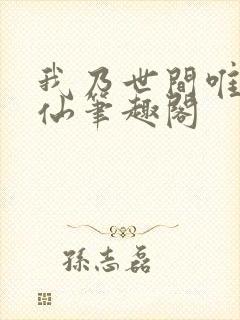 我乃世間唯
仙筆趣閣
孫志磊